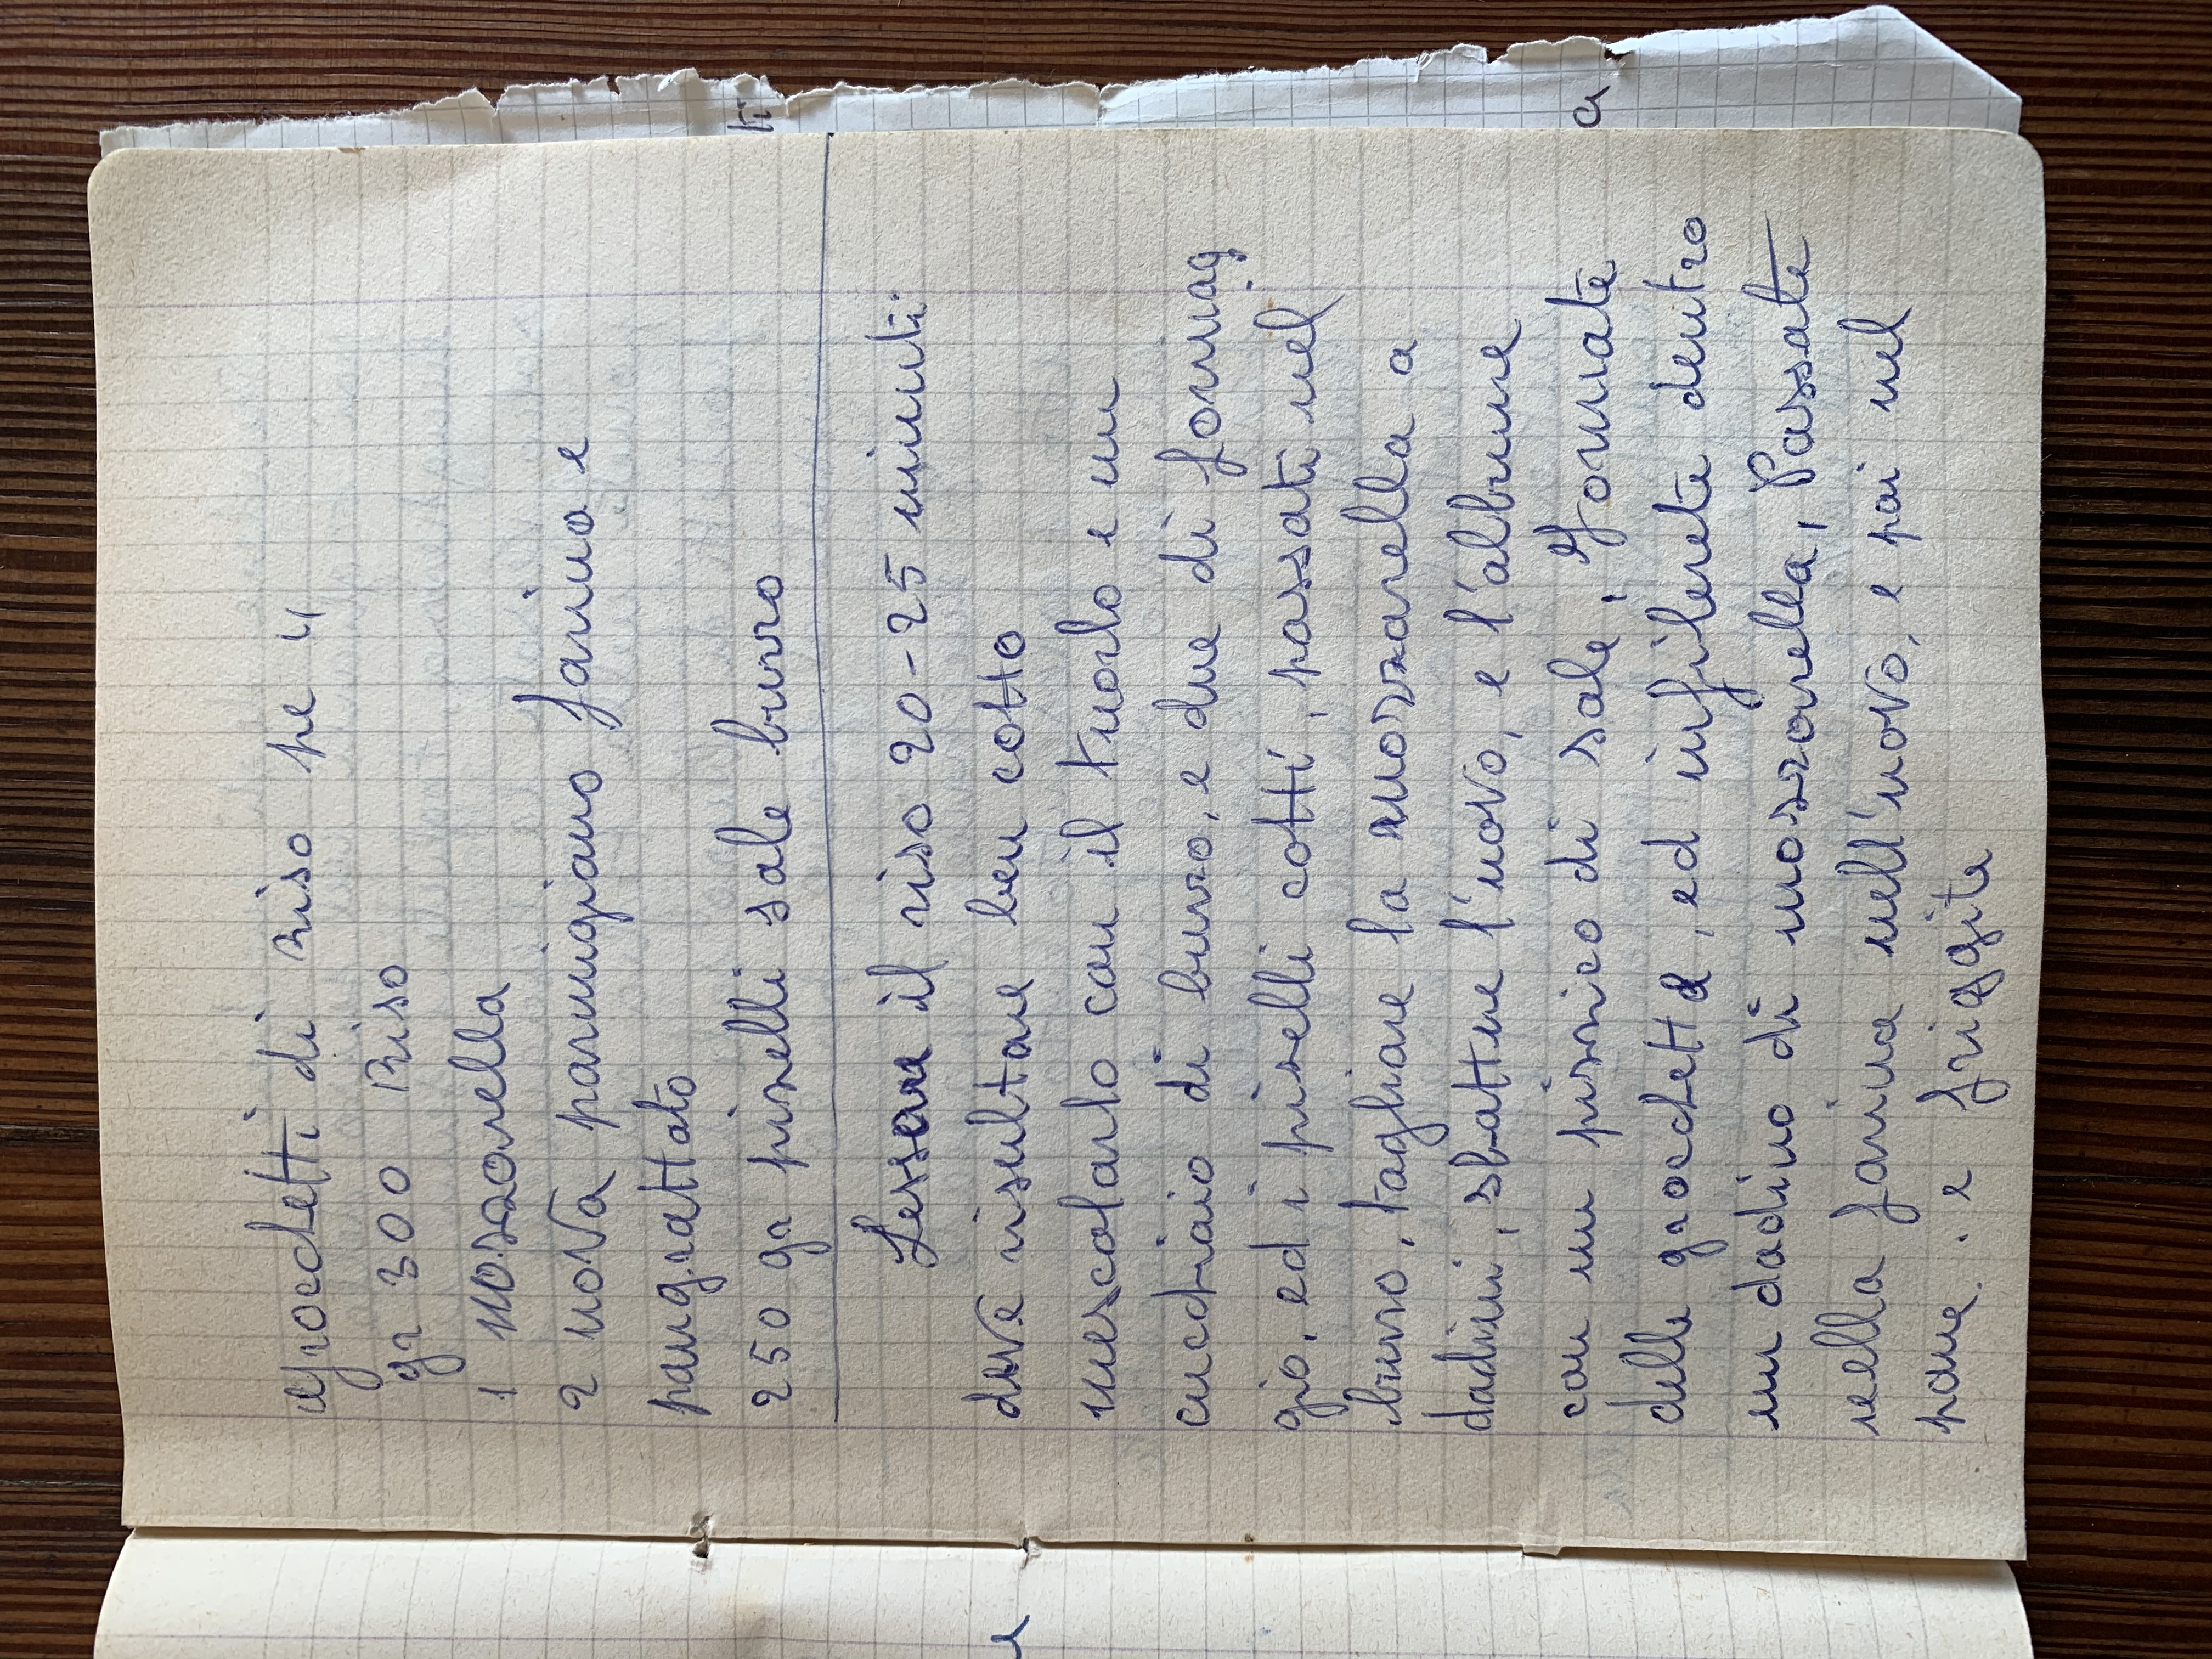 Grocchetti di riso pe 4
gr 300 Riso
1 mozzarella
2 uova parmigiano farina e
pangrattato
250 gr piselli sale burro
Lessare il riso 20-25 minuti
deve risultare ben cotto
mescolarlo con il tuorlo e un
cucchiaio di burro, e due di formag
gio, ed i piselli cotti, passati nel
burro, tagliare la mozzarella a
dadini, sbattere l'uovo, e l'albume
con un pizzico di sale, Formate
delle grocchette, ed infilerete dentro
un dadino di mozzarella, Passate
nella farina nell'uovo, e poi nel
pane. e friggite